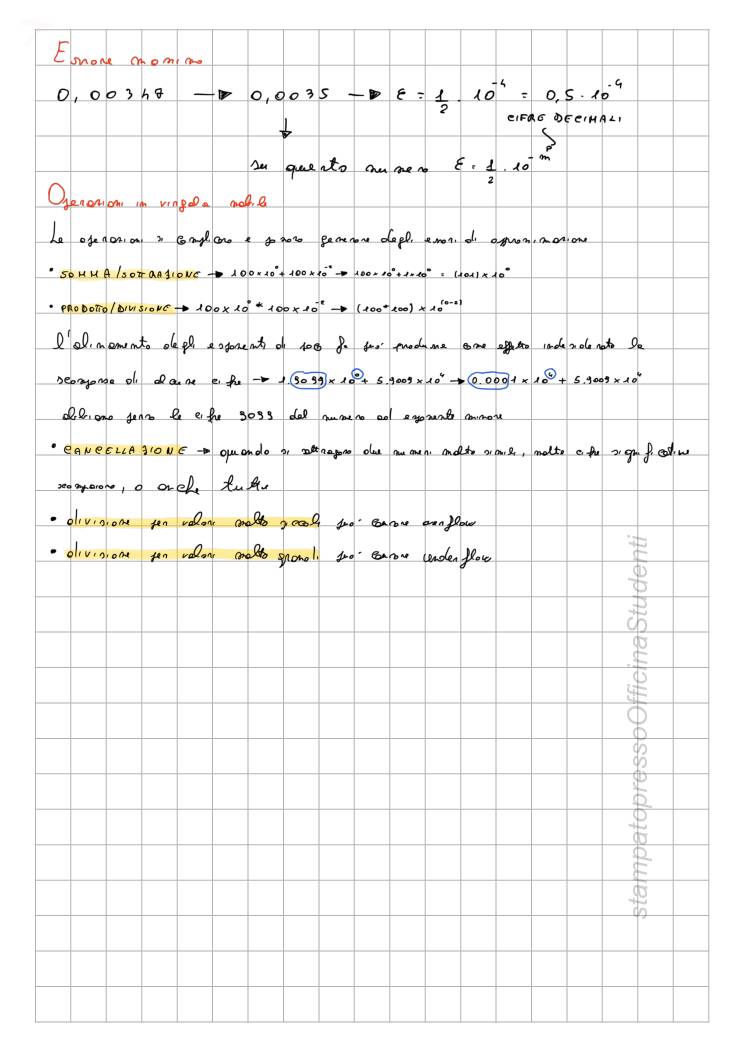 Errore massimo
0,00347 → 0,0035 → ε = 1/2 · 10^-4 = 0,5 · 10^-4
CIFRE DECIMALI
su questo numero ε = 1/2 · 10^-m
Operazioni in virgola mobile
Le operazioni si complicano e possono generare degli errori di approssimazione
• SOMMA/SOTTRAZIONE → 100×10^0 + 100×10^-2 → 100×10^0 + 1×10^0 = (101)×10^0
• PRODOTTO/DIVISIONE → 100×10^0 * 100×10^-2 → (100*100)×10^(0-2)
l'allineamento degli esponenti di può produrre come effetto indesiderato la
scomparsa di alcune cifre → 1.9099×10^0 + 5.9009×10^4 → 0.0001×10^4 + 5.9009×10^4
abbiamo perso le cifre 9099 del numero ad esponente minore
• CANCELLAZIONE → quando si sottraggono due numeri molto simili, molte cifre significative
scompaiono, o anche tutte
• divisione per valori molto piccoli può causare overflow
• divisione per valori molto grandi può causare underflow
stampatopressoOfficinaStudenti